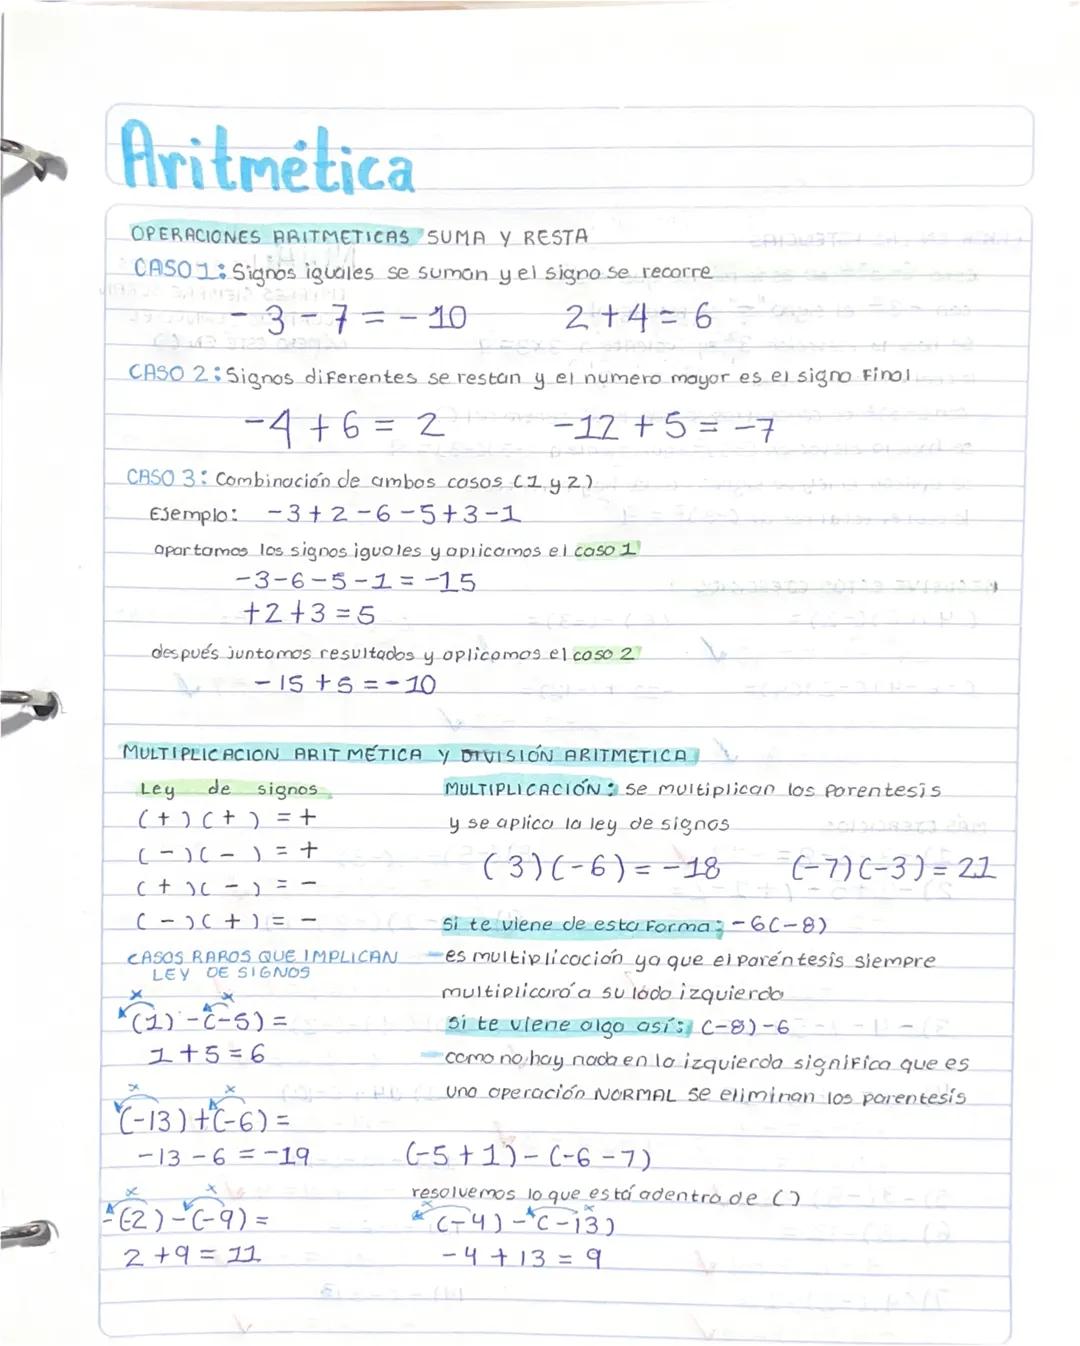 Aritmética
OPERACIONES ARITMETICAS SUMA Y RESTA
CASO 1: Signos iguales se suman y el signo se recorre
- 3 - 7 = - 10 2 + 4 = 6
CASO 2: Signos diferentes se restan y el numero mayor es el signo Final
-4 + 6 = 2 -12 + 5 = -7
CASO 3: Combinación de ambos casos (1 y 2)
Ejemplo: -3 + 2 - 6 - 5 + 3 - 1
apartamos los signos iguales y aplicamos el caso 1
-3 - 6 - 5 - 1 = -15
+2 + 3 = 5
después juntamos resultados y aplicamos el caso 2
- 15 + 5 = - 10
MULTIPLICACION ARITMÉTICA Y DIVISIÓN ARITMETICA
Ley de signos
(+)(+) = +
(-)(-) = +
(+)(-) = -
(-)(+) = -
CASOS RAROS QUE IMPLICAN
LEY DE SIGNOS
x x
(1) - (-5) =
1 + 5 = 6
x x
(-13) + (-6) =
-13 - 6 = -19
x x
-(-2) - (-9) =
2 + 9 = 11
MULTIPLICACIÓN: Se multiplican los parentesis
y se aplica la ley de signos
(3)(-6) = -18 (-7)(-3) = 21
Si te viene de esta Forma: -6(-8)
es multiplicación ya que el paréntesis siempre
multiplicará a su lado izquierdo
Si te viene algo así: (-8) - 6
como no hay nada en la izquierda significa que es
una operación NORMAL se eliminan los parentesis
(-5 + 1) - (-6 - 7)
resolvemos lo que está adentro de ()
x x
(-4) - (-13)
-4 + 13 = 9